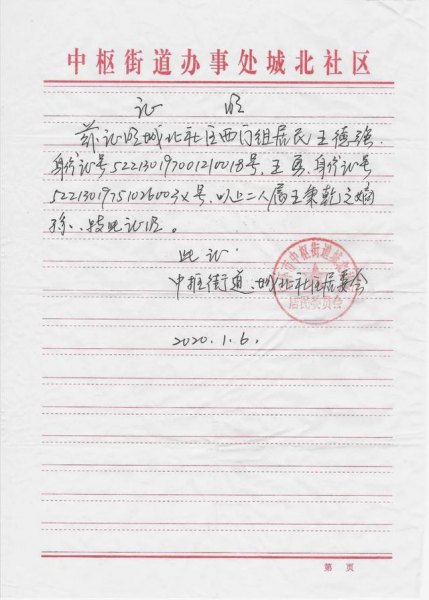 中枢街道办事处城北社区
证 明
兹证明城北社区西门组居民王德强,
身份证号522130197001210018号,王勇,身份证号
52213019751026003X号,以上二人属王秉乾之嫡
孙、特此证明。
此证
中枢街道、城北社区居委会
2020.1.6.
居民委员会
第 页